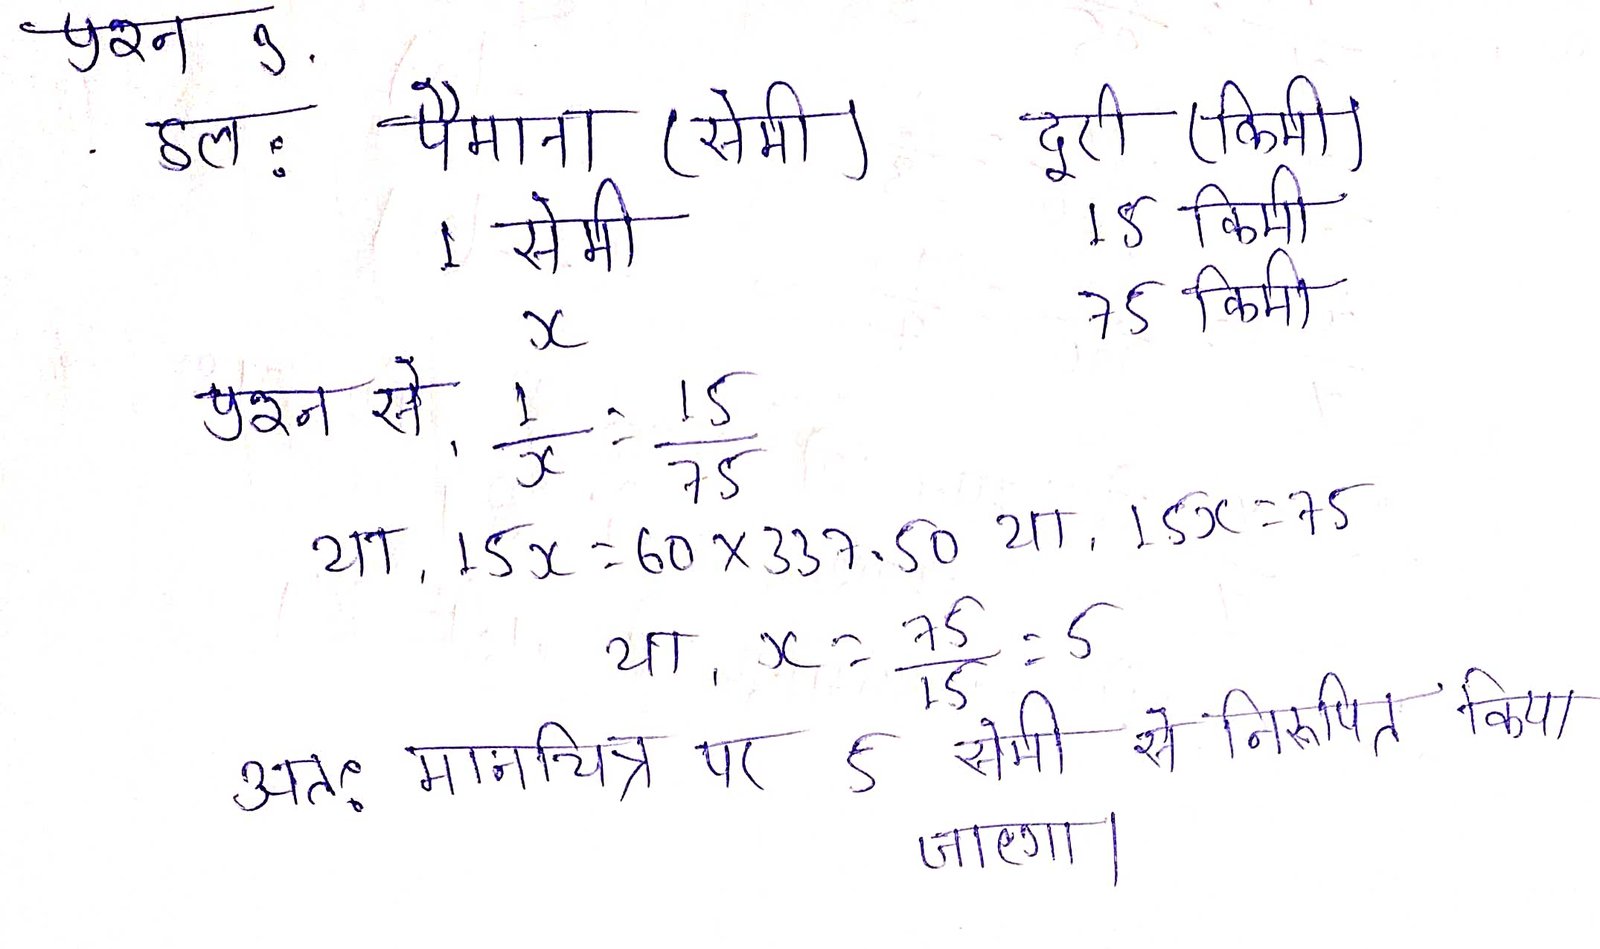 प्रश्न 3.
हल: पैमाना (सेमी) दूरी (किमी)
1 सेमी 15 किमी
x 75 किमी
प्रश्न से, 1/x = 15/75
या, 15x = 60 × 337.50 या, 15x = 75
या, x = 75/15 = 5
अतः मानचित्र पर 5 सेमी से निरूपित किया
जाएगा।